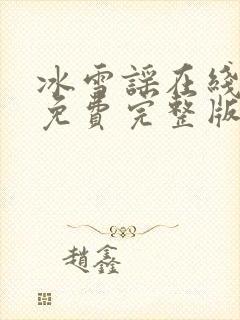 冰雪謠在綫
免費完整版
趙鑫